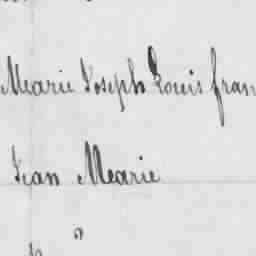 Marie Joseph Louis fran
Jean Marie